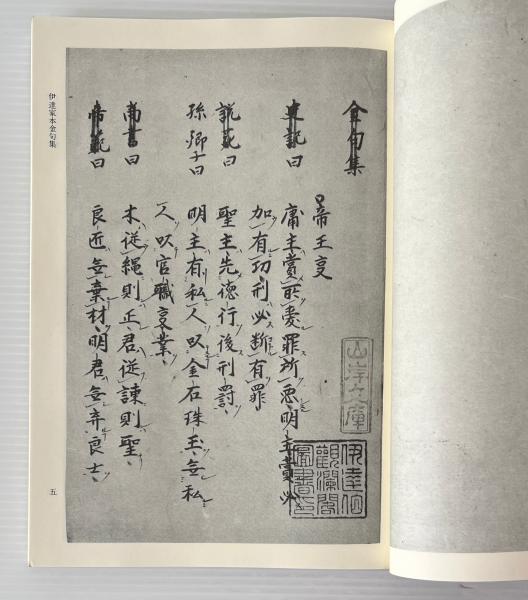 金句集
帝王事
史記曰 庸主賞所愛罪所悪明主賞必
加有功刑必断有罪
説苑曰 聖主先徳行後刑罰
孫卿子曰 明主有私人以金石珠玉無私
人以官職事業
尚書曰 木従縄則正君従諌則聖
帝範曰 良匠無棄材明君無弃良士
山岸文庫
伊達伯
観瀾閣
図書印
伊達家本金句集
五